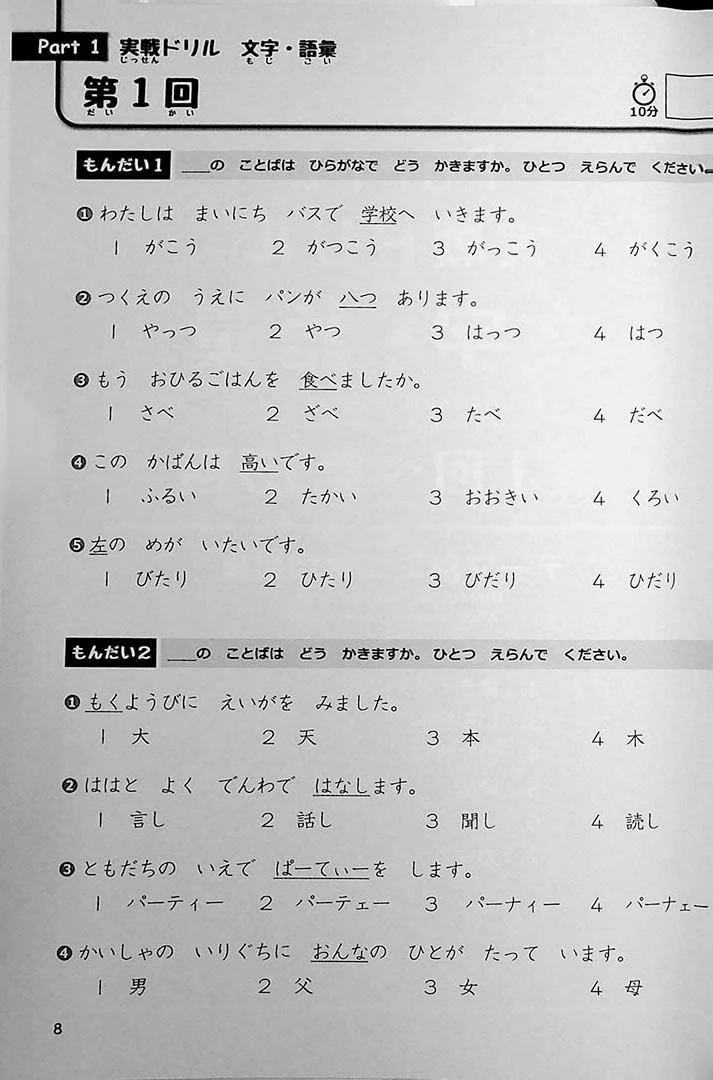 Part 1 実戦ドリル 文字・語彙
じっせん もじ ごい
第1回
だい かい
10分
もんだい1 ＿＿の ことばは ひらがなで どう かきますか。ひとつ えらんで ください。
❶ わたしは まいにち バスで 学校へ いきます。
1 がこう 2 がつこう 3 がっこう 4 がくこう
❷ つくえの うえに パンが 八つ あります。
1 やっつ 2 やつ 3 はっつ 4 はつ
❸ もう おひるごはんを 食べましたか。
1 さべ 2 ざべ 3 たべ 4 だべ
❹ この かばんは 高いです。
1 ふるい 2 たかい 3 おおきい 4 くろい
❺ 左の めが いたいです。
1 びたり 2 ひたり 3 びだり 4 ひだり
もんだい2 ＿＿の ことばは どう かきますか。ひとつ えらんで ください。
❶ もくようびに えいがを みました。
1 大 2 天 3 本 4 木
❷ ははと よく でんわで はなします。
1 言し 2 話し 3 聞し 4 読し
❸ ともだちの いえで ぱーてぃーを します。
1 パーティー 2 パーテェー 3 パーナィー 4 パーナェー
❹ かいしゃの いりぐちに おんなの ひとが たって います。
1 男 2 父 3 女 4 母
8